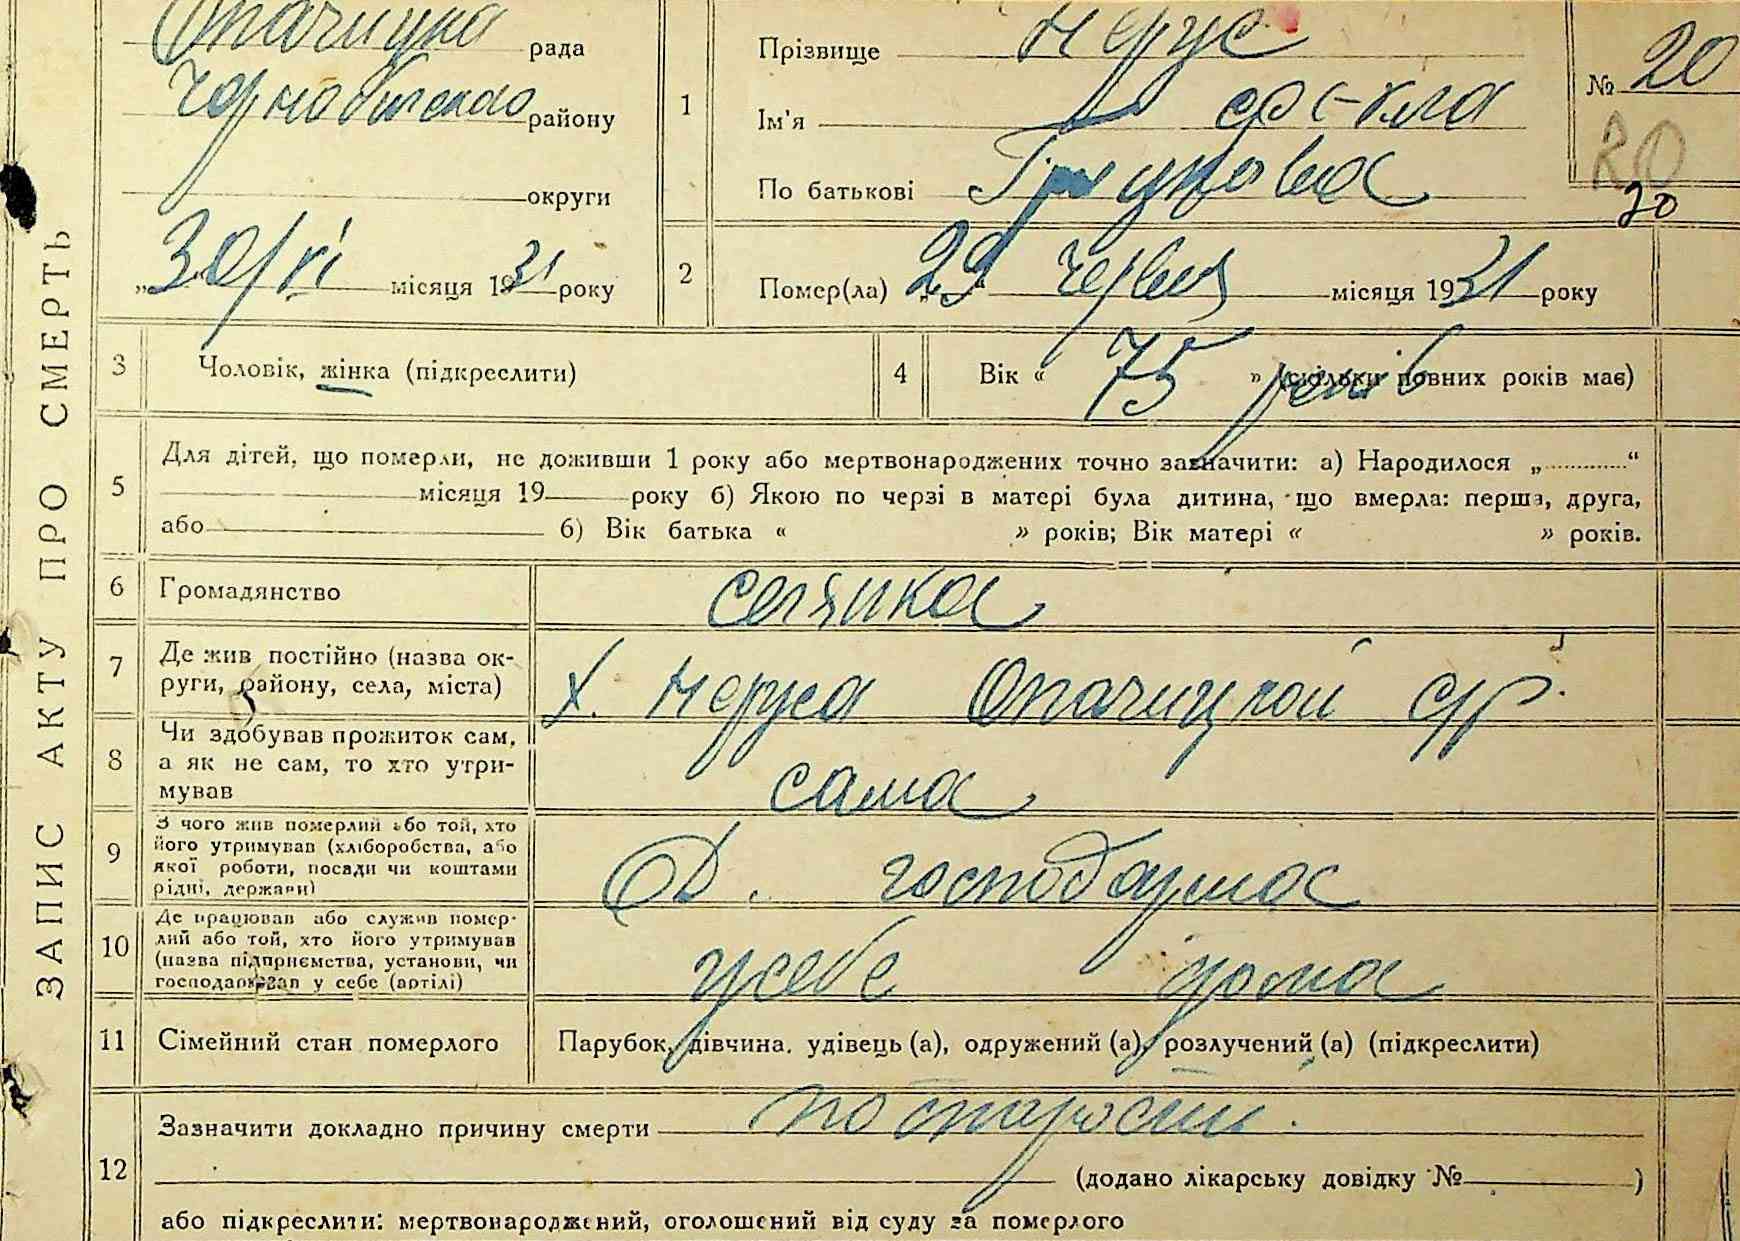 ЗАПИС АКТУ ПРО СМЕРТЬ
Опачицка рада
Чорнобильсько району
округи
„30/VI місяця 1931 року
1
Прізвище Нерус
Ім'я
По батькові Грицькова
№ 20
20
20
2
Помер(ла) „29“ червня місяця 1931 року
3
Чоловік, жінка (підкреслити)
4
Вік « 75 » років (скільки повних років має)
5
Для дітей, що померли, не доживши 1 року або мертвонароджених точно зазначити: а) Народилося „ “
місяця 19 року б) Якою по черзі в матері була дитина, що вмерла: перша, друга,
або б) Вік батька « » років; Вік матері « » років.
6
Громадянство
селянка
7
Де жив постійно (назва ок-
руги, району, села, міста)
х. Неруса Опачицкой с/р.
8
Чи здобував прожиток сам,
а як не сам, то хто утри-
мував
сама
9
З чого жив померлий або той, хто
його утримував (хліборобства, або
якої роботи, посади чи коштами
рідні, держави)
господарша
10
Де працював або служив помер-
лий або той, хто його утримував
(назва підприємства, установи, чи
господарював у себе (артілі)
усебе дома
11
Сімейний стан померлого
Парубок, дівчина, удівець (а), одружений (а), розлучений (а) (підкреслити)
12
Зазначити докладно причину смерти по старости.
(додано лікарську довідку № )
або підкреслити: мертвонароджений, оголошений від суду за померлого